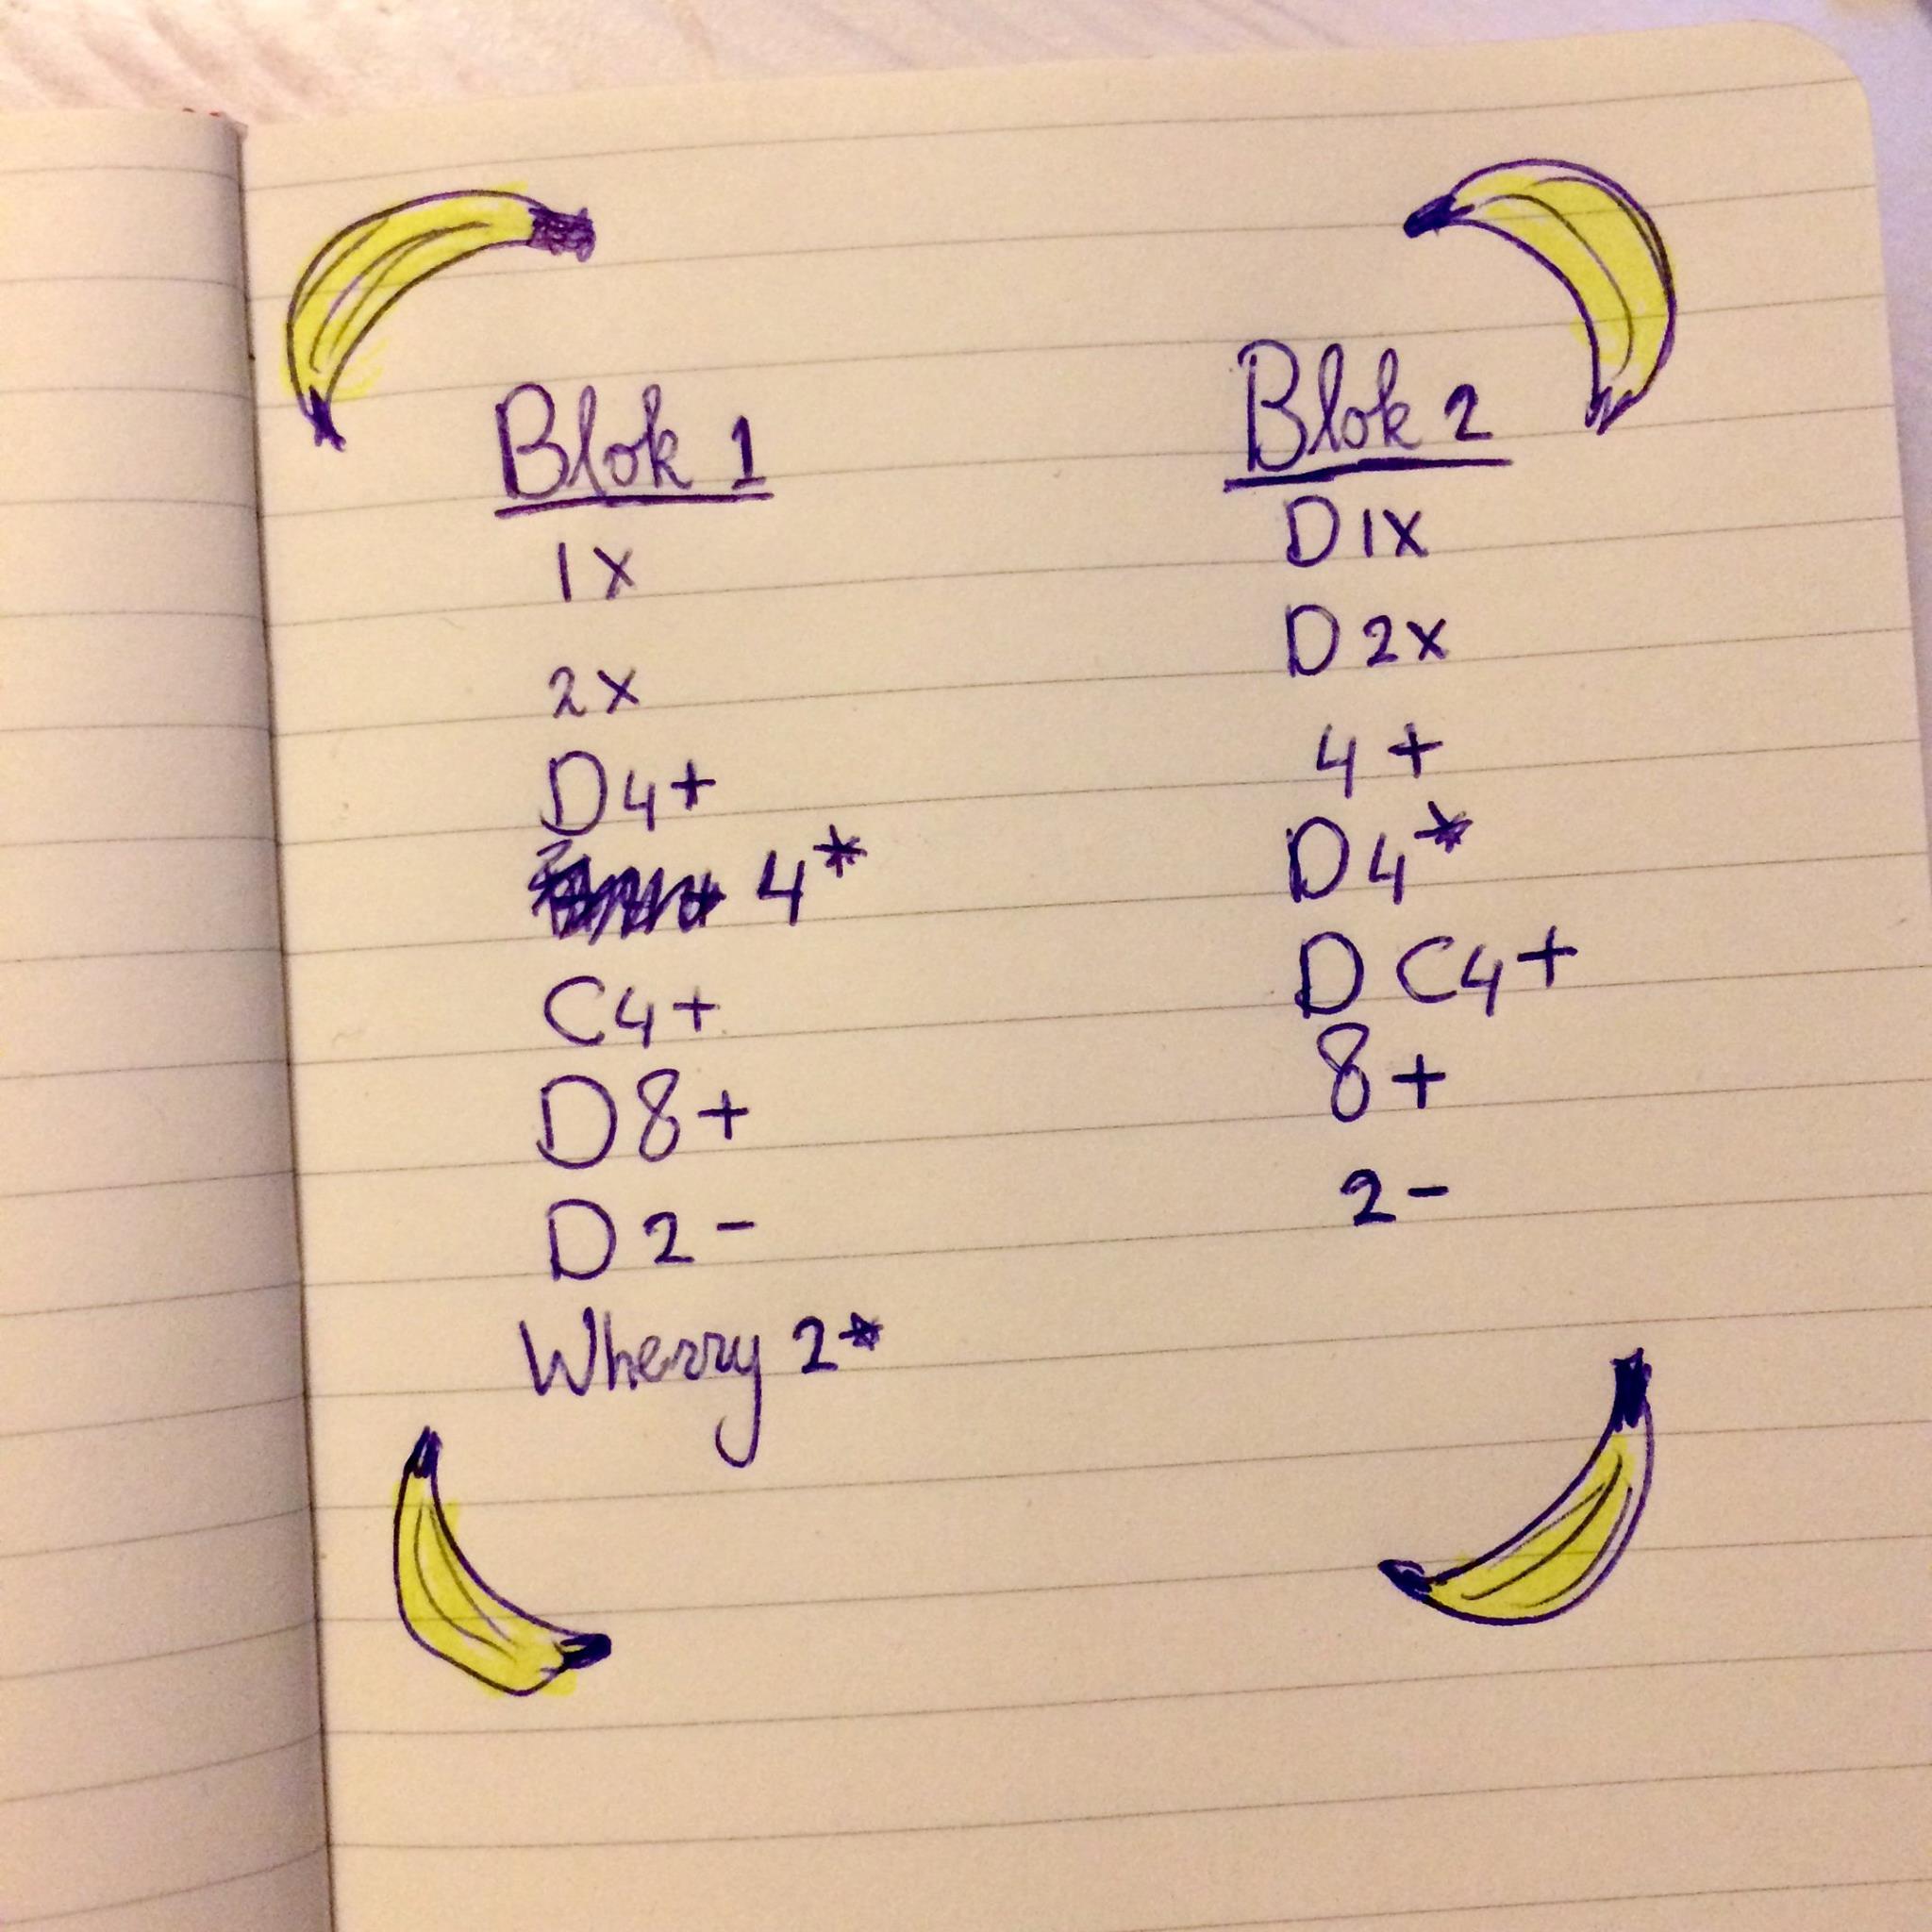 Blok 1
1x
2x
D4+
4*
C4+
D8+
D2-
Wherry 2*
Blok 2
D1x
D2x
4+
D4*
D C4+
8+
2-